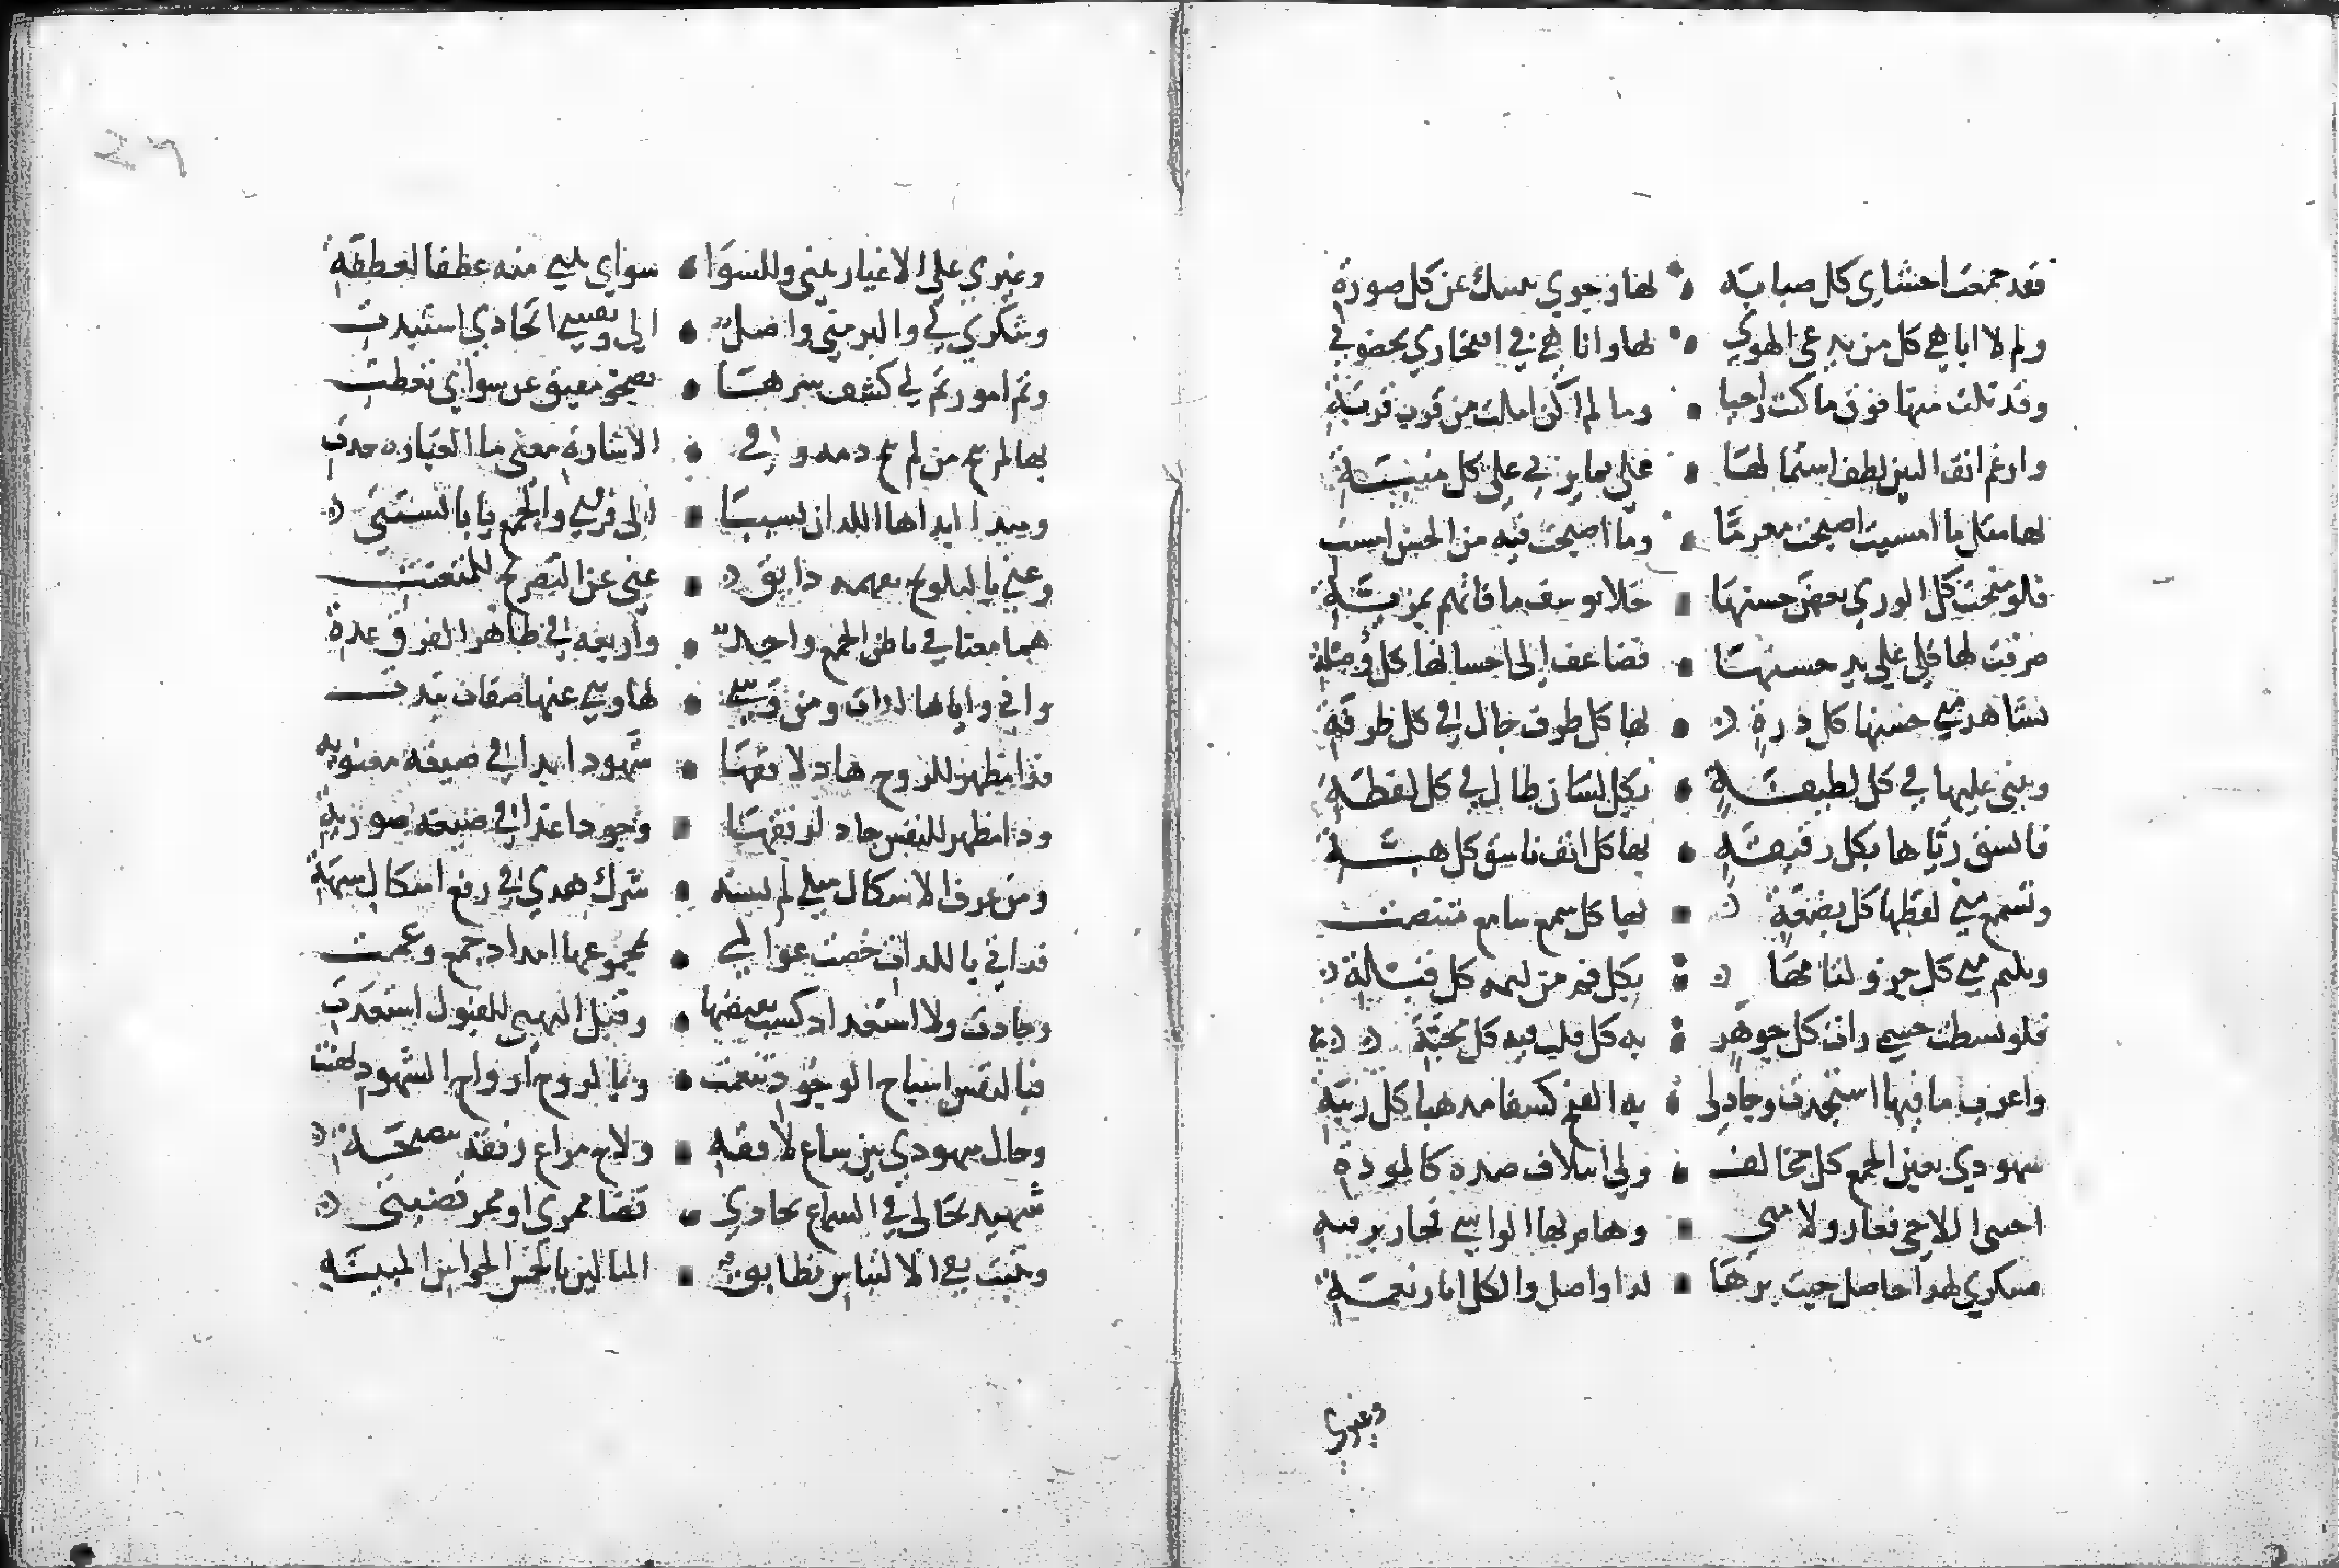 فقد جمعت احشاى كل صبابة لها وجوي ينبيك عن كل صورة
ولم لا اباهي كل من يدعي الهوي لها واناهي في افتخاري بحضوتي
وقد نلت منها فوق ما كنت راجيا وما لم اكن املت من قرب قربة
وارغم انف البين لطف اشتمالها علي بما يربي علي كل منيتة
لها مثل ما امسيت اصبحت مغرما وما اصبحت فيه من الحسن امست
فلو منحت كل الوري بعض حسنها خلا يوسف ما فاتهم بمزية
صرفت لها كلي علي يد حسنها فضاعف الي احسانها كل وصلة
يشاهد مني حسنها كل ذرة لها كل طرف جال في كل طرفة
ويثني عليها في كل لطيفة بكل لسان طال في كل لفظة
وانشق رياها بكل رقيقة بها كل انف ناشق كل هبة
وتسمع مني لفظها كل بضعة بها كل سمع سامع متنصت
ويلثم مني كل جزو لثامها بكل فم من لثمه كل قبلة
فلو بسطت جسمي رات كل جوهر به كل قلب فيه كل محبة
واغرب ما فيها استجدت وجاد لي به الفتح كشفا مذهبا كل ريبة
شهودي بعين الجمع كل مخالف ولي ايتلاف صده كالمودة
احبني اللاحي فغار ولامني وهام بها الواشي فجار برقبة
فشكري لهذا حاصل حيث برها لذا واصل والكل اثار نعمة
وغيري
وغيري علي الاغيار يثني وللسوا سواي يثني منه عطفا لعطفة
وشكري لي والبر مني واصل الي ونفسي اتحادي استبدت
وثم امور تم لي كشف سترها بصحو مفيق عن سواي تغطت
بها لم يبح من لم يبح دمه وفي الاشارة معني ما العبارة حدت
ومبدا ابداها اللذان تسببا الي فرقتي والجمع يابا تشتتي
وعني بالتلويح يفهم ذايق غني عن التصريح للمتعنت
هما معنا في باطن الجمع واحد واربعة في ظاهر الفرق عدة
واني واياها لذات ومن وشي بها وثني عنها صفات تبدت
فذا مظهر للروح هاد لافقها شهودا بدا في صيغة معنوية
وذا مظهر للنفس حاد لرفقها وجودا غدا في صيغة صورية
ومن عرف الاشكال مثلي لم يشبه شرك هدي في رفع اشكال شبهة
فذاتي باللذات خصت عوالمي بمجموعها امداد جمع وعمت
وجادت ولا استعداد كسب بفيضها وقبل التهيي للقبول استعدت
فبالنفس اشباح الوجود تنعمت وبالروح ارواح الشهود تهنت
وحال شهودي بين ساع لافقه ولاح مراع رفقه بنصيحة
شهيد بحالي في السماع لجاذبي قضا مقري او ممر قضيتي
ويثبت نفي الالتباس تطابق المثالين بالخمس الحواس المبينة